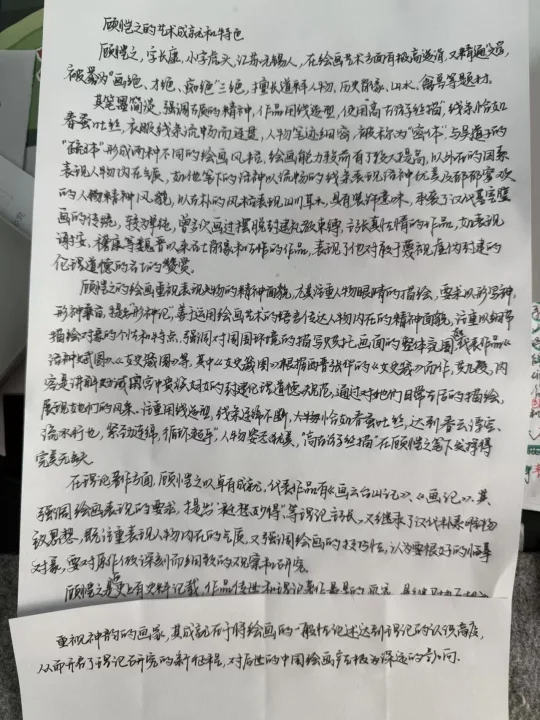 顾恺之的艺术成就和特色
顾恺之，字长康，小字虎头，江苏无锡人，在绘画艺术方面有极高造诣，又精通文容，
被誉为"画绝、才绝、痴绝"三绝，擅长道释人物、历史肖像、山水、禽兽等题材。
其笔墨简淡，强调古质的精神，作品用线造型，使用"高古游丝描"，线条恰如
春蚕吐丝，衣服线条流畅而连甚，人物笔迹细密，被称为"密体"，与吴道子的
"疏体"形成两种不同的绘画风格，绘画能力较前有了较大提高，以外在的因素
表现人物内在气质，如他笔下的洛神以流畅的线条表现洛神优柔及郁郁寡欢
的人物精神风貌，以古朴的风格表现山川草木，具有装饰意味，承袭了汉代墓室壁
画的传统，较为单纯，曾多次画过摆脱封建礼教束缚，主张真性情的作品，如表现
谢安、嵇康等魏晋以来名士肖像和创作的作品，表现了他对敢于蔑视虚伪封建的
伦理道德的名士的赞赏。
顾恺之的绘画重视表现人物的精神面貌，尤其注重人物眼睛的描绘，要求以形写神，
形神兼备，提出"形神论"，善于运用绘画艺术的语言传达人物内在的精神面貌，注重以细节
描绘对象的个性和特点，强调对周围环境的描写及烘托画面的整体氛围，代表作品《
洛神赋图》、《女史箴图》等，其中《女史箴图》根据西晋张华的《女史箴》而作，共九段，内
容是讲解如何试图宫中贵族妇女的封建伦理道德规范，通过对她们日常生活的描绘，
展现女们的风采。注重用线造型，线条连绵不断，人物恰如春蚕吐丝，达到春云浮空、
流水行地，紧劲连绵，循环超乎，人物姿态优美，"高古游丝描"在顾恺之笔下发挥得
完美无缺
在理论著作方面，顾恺之以卓有成就，代表作品有《画云台山记》、《画记》，其
强调绘画表现的要求，提出"迁想妙得"等理论主张，又继承了汉代朴素唯物
主义思想，既注重表现人物内在的气质，又强调绘画的技巧性，认为要很好的临摹
对象，要对原作做深刻而细致的观察和研究
顾恺之是史上有史料记载，作品传世和理论著作
重视神韵的画家，其成就在于将绘画的一般性论述达到理论的认识高度，
从而开启了理论研究的新征程，对后世的中国绘画产生极为深远的影响.